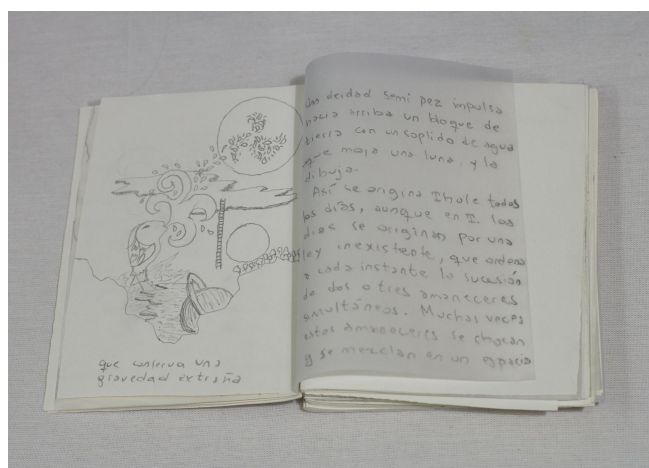 Un deidad semi pez impulsa
hacia arriba un bloque de
tierra con un soplido de agua
que moja una luna, y la
dibuja.
Así se origina Thule todos
los días, aunque en T. los
días se originan por una
ley inexistente, que ordena
a cada instante la sucesión
de dos o tres amaneceres
simultáneos. Muchas veces
estos amaneceres se chocan
y se mezclan en un espacio
que conserva una
gravedad extraña